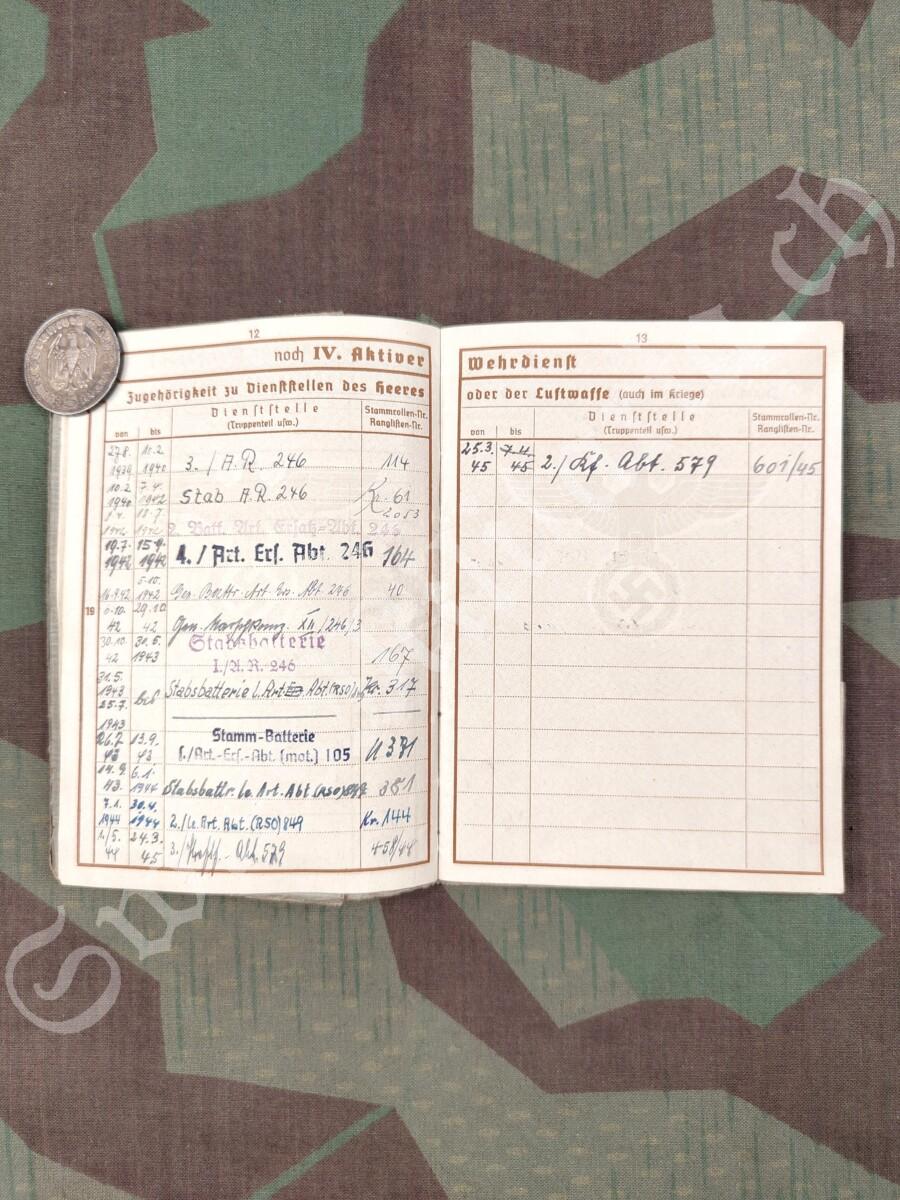 12
noch IV. Aktiver
Zugehörigkeit zu Dienststellen des Heeres
von bis Dienststelle (Truppenteil usw.) Stammrollen-Nr. Ranglisten-Nr.
27.8. 1939 10.2. 1940 3./A.R. 246 114
10.2. 1940 7.4. 1942 Stab A.R. 246 Kr. 61
2053
18.7. 1942 2. Batt. Art. Ersatz-Abt. 246
19.7. 1942 15.9. 1942 4./Art. Ers. Abt. 246 164
16.9.42 5.10. 1942 Art. Ers. Abt 246 40
19
42 29.10 42 Gen. Marschkomp. XII/246/3
30.10. 42 30.5. 1943 Stabsbatterie
I./A.R. 246 167
31.5. 1943 bis 25.7. 1943 Stabsbatterie l. Art. Abt (RSO) Kr. 317
26.7. 43 13.9. 43 Stamm-Batterie
/Art.-Ers.-Abt. (mot.) 105 371
14.9. 43. 6.1. 1944 Stabsbattr. le. Art. Abt (RSO) 849 381
7.1. 1944 30.4. 1944 2./le. Art. Abt. (RSO) 849 Kr. 144
1./5. 44 24.3. 45 3./ Abt. 579 458/44
13
Wehrdienst
oder der Luftwaffe (auch im Kriege)
von bis Dienststelle (Truppenteil usw.) Stammrollen-Nr. Ranglisten-Nr.
25.3. 45 7.4. 45 2./Kf. Abt. 579 601/45